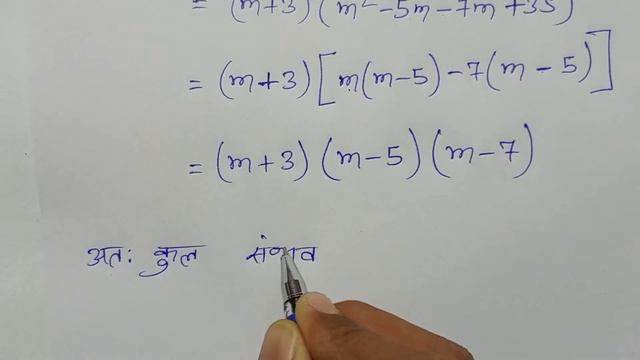 = (m+3) (m² - 5m - 7m + 35)
= (m+3) [m(m-5) - 7(m-5)]
= (m+3) (m-5) (m-7)
अत: कुल संभव